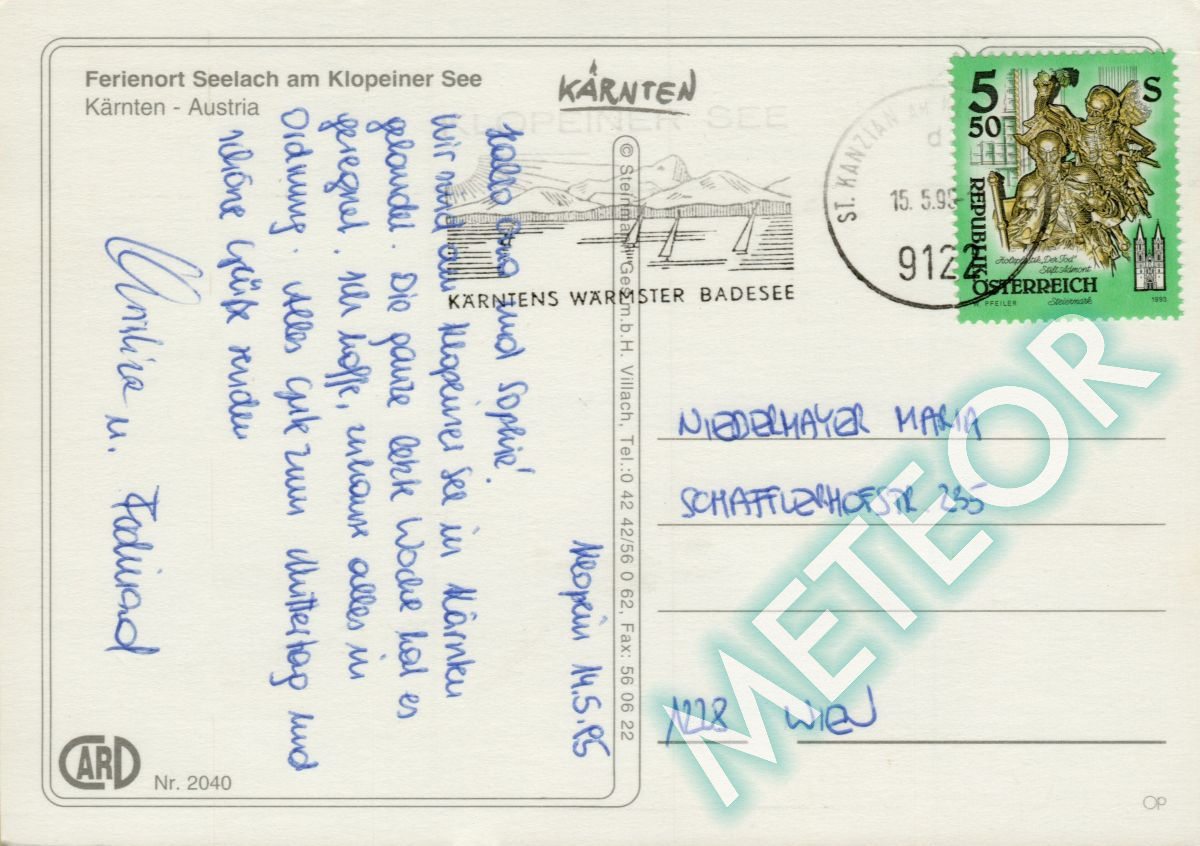 Ferienort Seelach am Klopeiner See
Kärnten - Austria
KÄRNTEN
KLOPEINER SEE
KÄRNTENS WÄRMSTER BADESEE
ST. KANZIAN AM
d
15. 5.95-
9122
5 50 S
REPUBLIK
ÖSTERREICH
Holzplastik „Der Tod"
Stift Admont
Steiermark
W. PFEILER
1993
Klopein 14.5.95
Hallo Oma und Sophie!
Wir sind am Klopeiner See in Kärnten
gelandet. Die ganze letzte Woche hat es
geregnet. Ich hoffe, zuhause alles in
Ordnung. Alles Gute zum Muttertag und
schöne Grüße senden
u. Ferdinand
© Steinmann Ges.m.b.H. Villach, Tel.:0 42 42/56 0 62, Fax: 56 06 22
NIEDERMAYER MARIA
SCHAFFLERHOFSTR. 235
1228 WIEN
METEOR
CARD
Nr. 2040
OP